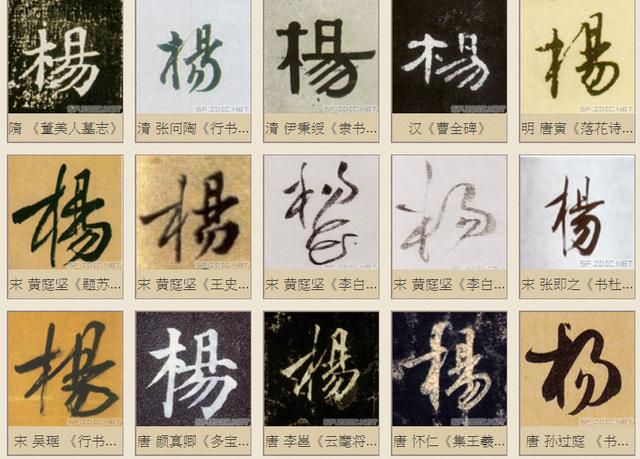 楊 楊 楊 楊 楊
隋 《董美人墓志》 清 张问陶《行书... 清 伊秉绶《隶书... 汉《曹全碑》 明 唐寅《落花诗...
楊 楊 楊 楊 楊
宋 黄庭坚《题苏... 宋 黄庭坚《王史... 宋 黄庭坚《李白... 宋 黄庭坚《李白... 宋 张即之《书杜...
楊 楊 楊 楊 杨
宋 吴琚 《行书... 唐 颜真卿《多宝... 唐 李邕《云麾将... 唐 怀仁《集王羲... 唐 孙过庭 《书...
SF.ZDIC.NET